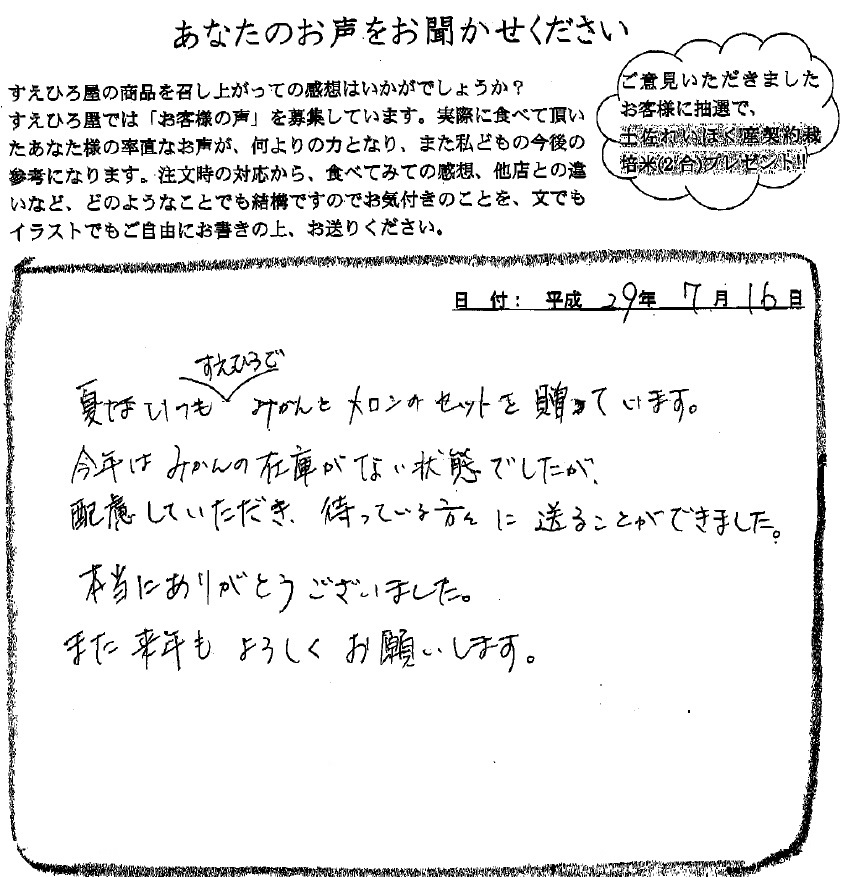 あなたのお声をお聞かせください
すえひろ屋の商品を召し上がっての感想はいかがでしょうか?
すえひろ屋では「お客様の声」を募集しています。実際に食べて頂い
たあなた様の率直なお声が、何よりの力となり、また私どもの今後の
参考になります。注文時の対応から、食べてみての感想、他店との違
いなど、どのようなことでも結構ですのでお気付きのことを、文でも
イラストでもご自由にお書きの上、お送りください。
ご意見いただきました
お客様に抽選で、
土佐れいほく産契約栽
培米(2合)プレゼント!!
日 付: 平成 29年 7月 16日
すえひろで
夏はいつも みかんとメロンのセットを贈っています。
今年はみかんの在庫がない状態でしたが、
配慮していただき、待っている方々に送ることができました。
本当にありがとうございました。
また来年もよろしくお願いします。